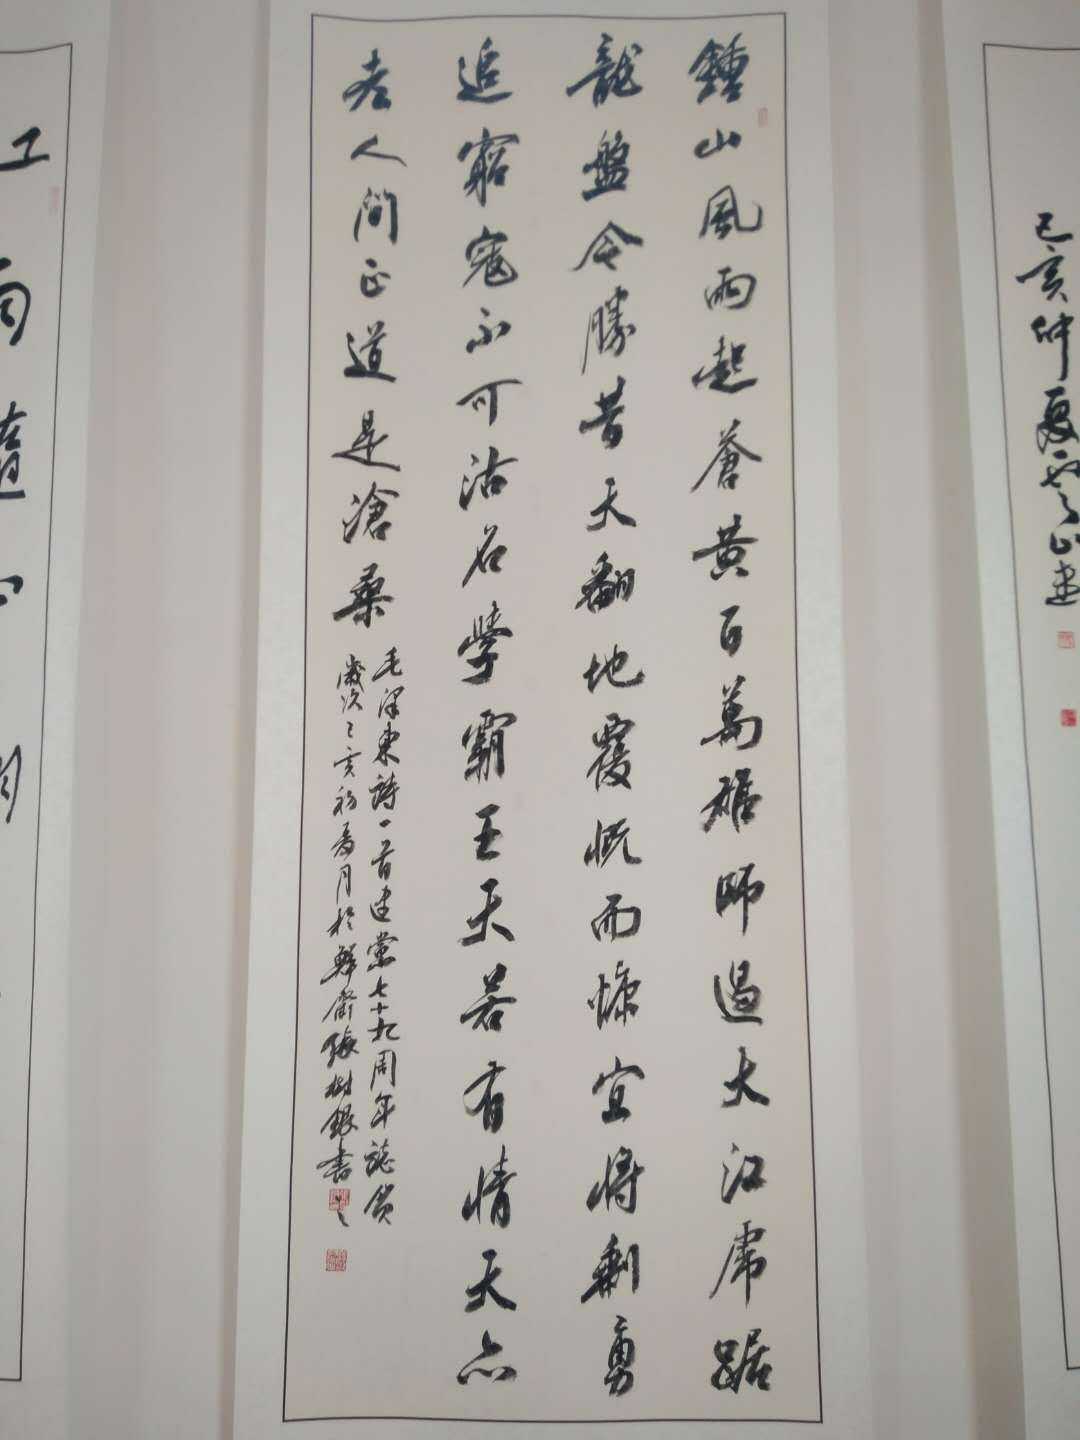 己亥仲夏
鍾山風雨起蒼黃百萬雄師過大江虎踞
龍盤今勝昔天翻地覆慨而慷宜將剩勇
追窮寇不可沽名學霸王天若有情天亦
老人間正道是滄桑
毛澤東詩一首建黨七十九周年誌賀
歲次亥初夏月於齋張樹銀書